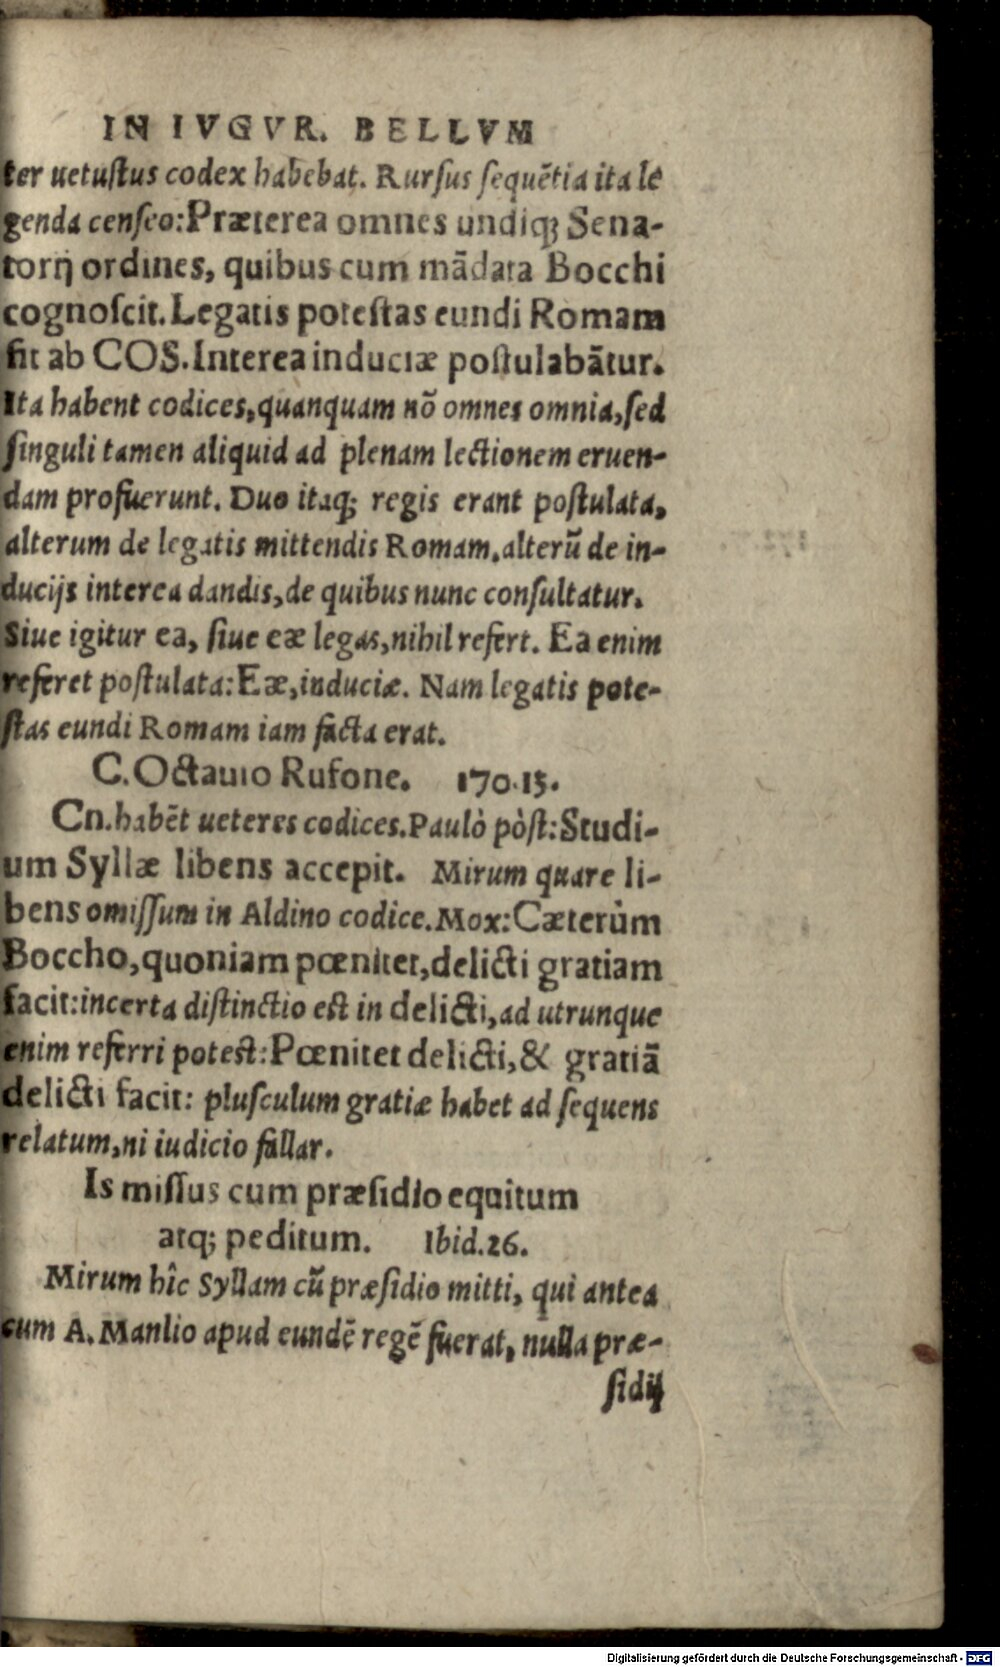 IN IVGVR. BELLVM
ter uetuſtus codex habebat. Rurſus ſequẽtia ita le
genda cenſeo: Præterea omnes undiq; Sena-
torij ordines, quibus cum mãdata Bocchi
cognoſcit. Legatis poteſtas eundi Romam
fit ab COS. Interea induciæ poſtulabãtur.
Ita habent codices, quanquam nõ omnes omnia, ſed
ſinguli tamen aliquid ad plenam lectionem eruen-
dam profuerunt. Duo itaq; regis erant poſtulata,
alterum de legatis mittendis Romam, alterũ de in-
ducijs interea dandis, de quibus nunc conſultatur.
Siue igitur ea, ſiue eæ legas, nihil refert. Ea enim
referet poſtulata: Eæ, induciæ. Nam legatis pote-
ſtas eundi Romam iam facta erat.
C. Octauio Rufone. 170.15.
Cn. habẽt ueteres codices. Paulò pòſt: Studi-
um Syllæ libens accepit. Mirum quare li-
bens omiſſum in Aldino codice. Mox: Cæterùm
Boccho, quoniam pœnitet, delicti gratiam
facit: incerta diſtinctio eſt in delicti, ad utrunque
enim referri poteſt: Pœnitet delicti, & gratiã
delicti facit: pluſculum gratiæ habet ad ſequens
relatum, ni iudicio fallar.
Is miſſus cum præſidio equitum
atq; peditum. Ibid. 26.
Mirum hîc Syllam cũ præſidio mitti, qui antea
cum A. Manlio apud eundẽ regẽ fuerat, nulla præ-
ſidij
Digitalisierung gefördert durch die Deutsche Forschungsgemeinschaft - DFG